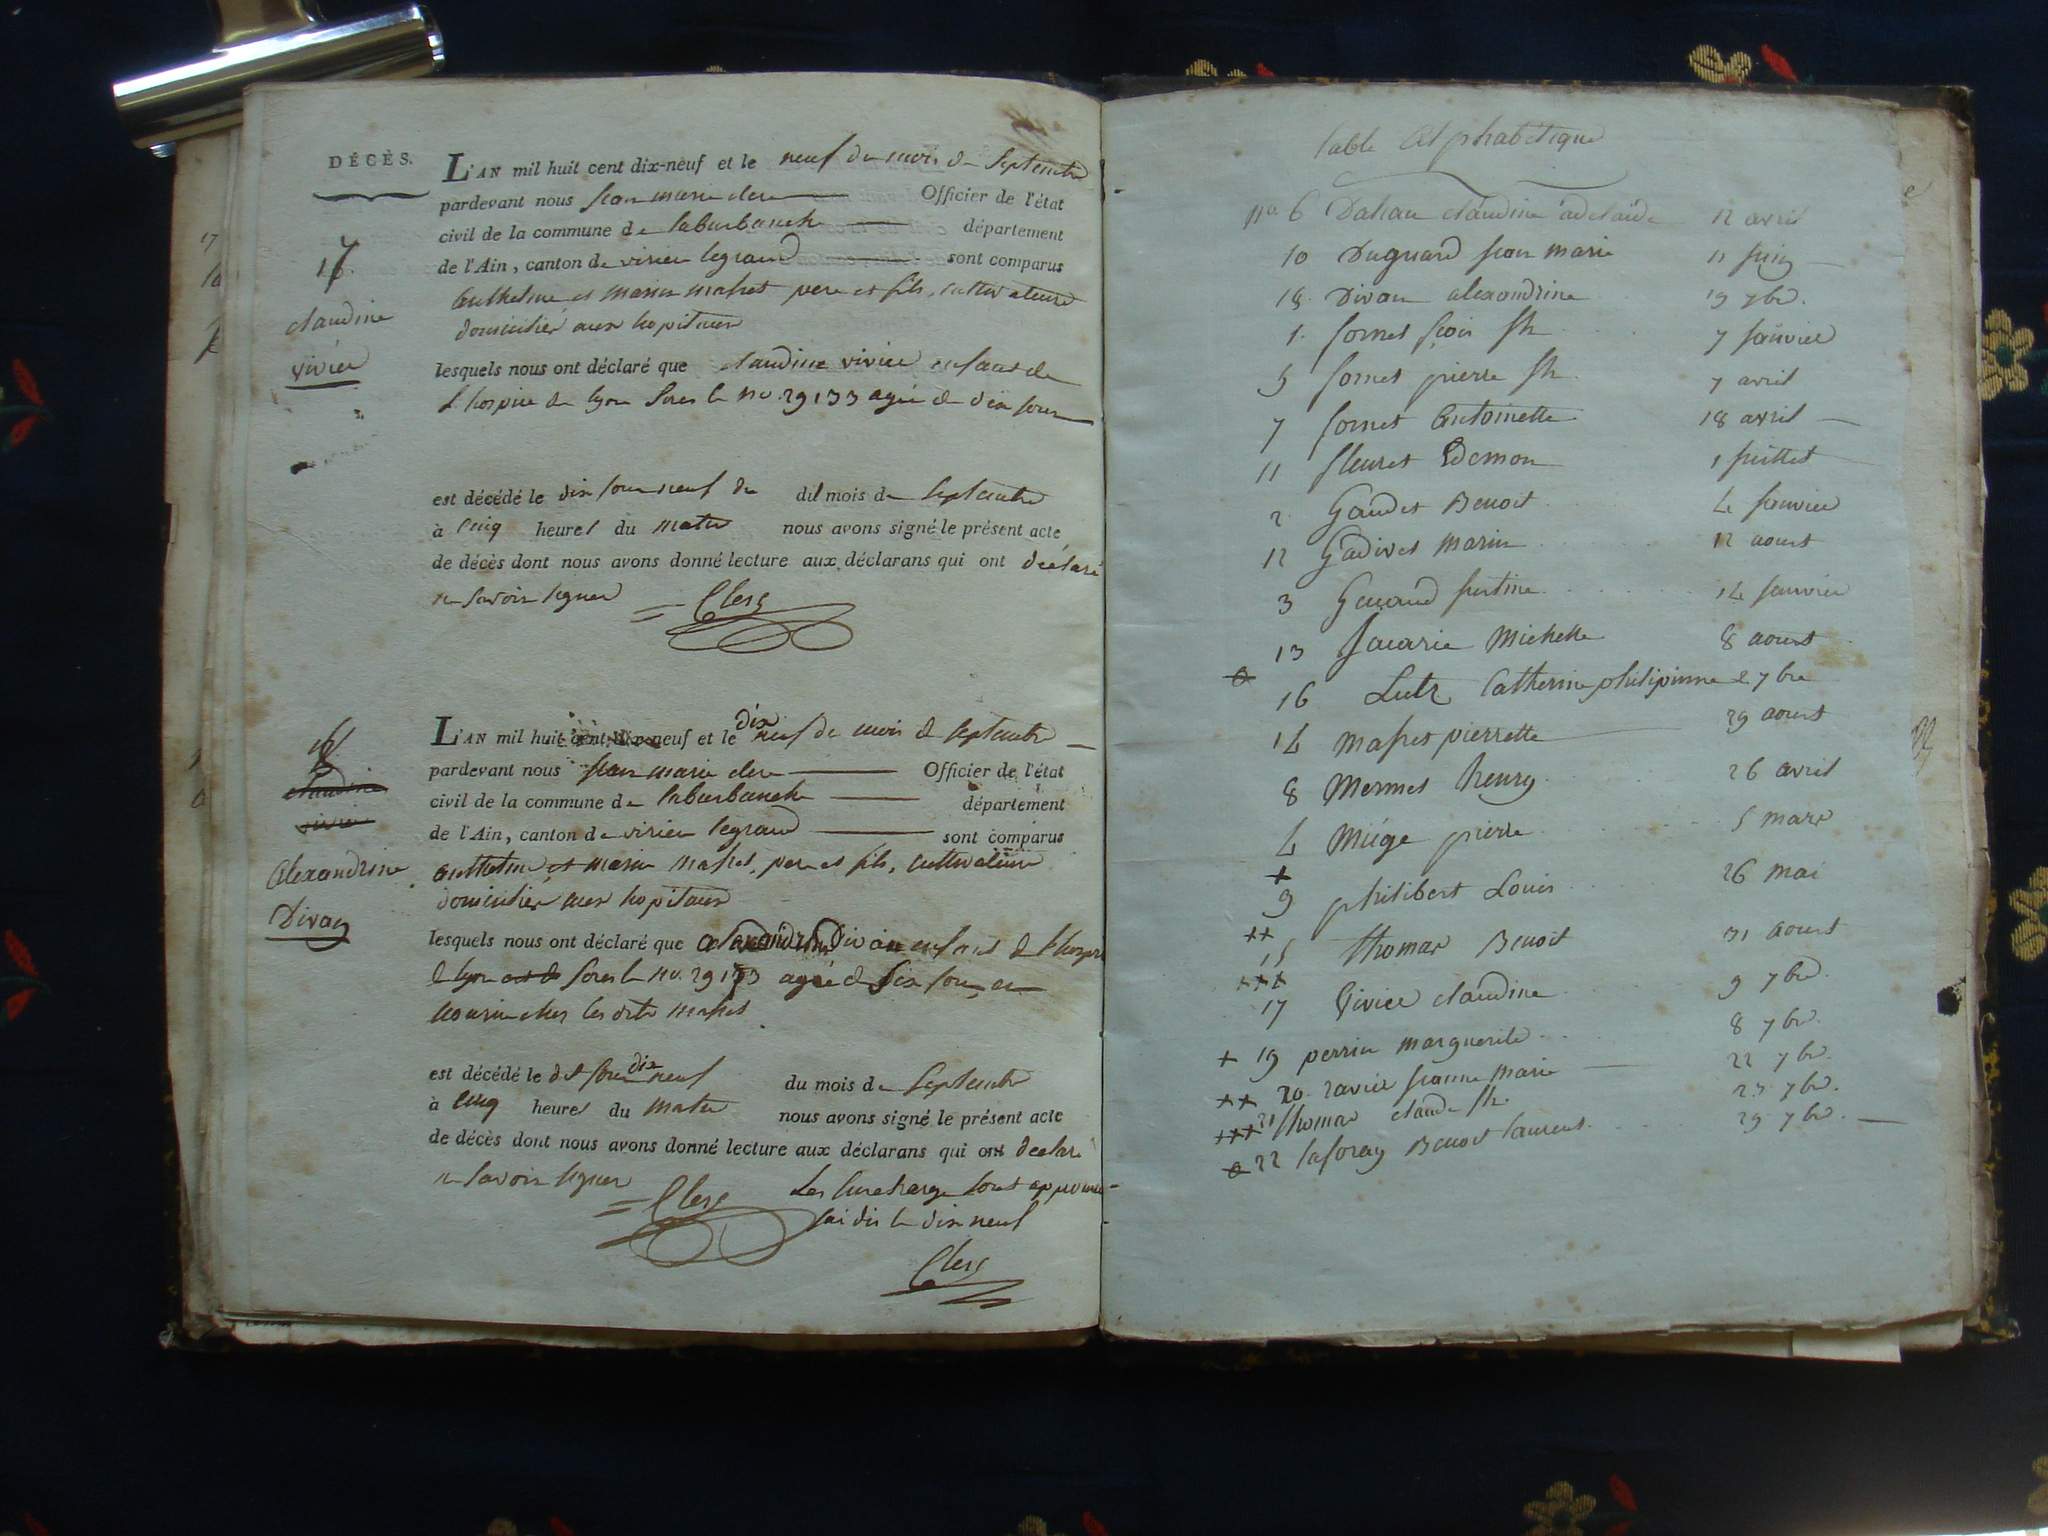 DÉCÈS.
17
claudine
vivier
L'AN mil huit cent dix-neuf et le neuf du mois de Septembre
pardevant nous jean marie clerc Officier de l'état
civil de la commune de laburbanche département
de l'Ain, canton de virieu legrand sont comparus
anthelme et marin masset pere et fils, cultivateurs
domiciliés aux hopitaux
lesquels nous ont déclaré que claudine vivier enfant de
l'hospice de lyon sous le no. 29133 agée de dix jours
est décédé le dix jour neuf du dit mois de Septembre
à cinq heures du matin nous avons signé le présent acte
de décès dont nous avons donné lecture aux déclarans qui ont déclaré
ne savoir signer
Clerc
18
claudine
vivier
alexandrine
Divan
L'AN mil huit cent dix-neuf et le dix neuf du mois de septembre
pardevant nous jean marie clerc Officier de l'état
civil de la commune de laburbanche département
de l'Ain, canton de virieu legrand sont comparus
anthelme et marin masset, pere et fils, cultivateurs
domiciliés aux hopitaux
lesquels nous ont déclaré que alexandrine Divan enfant de l'hospice
de lyon sous le no. 29173 agée de dix jours, en
nourrice chez les dits masset
est décédé le dit jour dix neuf du mois de Septembre
à cinq heures du matin nous avons signé le présent acte
de décès dont nous avons donné lecture aux déclarans qui ont déclaré
ne savoir signer
Clerc
Les surcharge sont approuvé
j'ai dis le dix neuf
Clerc
table Alphabétique
no 6 Dalian claudine adelaïde 12 avril
10 Duguard jean marie 11 juin
18 Divan alexandrine 19 7bre.
1. fornet fçois fils 7 janvier
5 fornet pierre fils 7 avril
7 fornet antoinette 18 avril
11 fleuret Edemon 1 juillet
2 Gaudet Benoit 4 janvier
12 Gadivet marin 12 aoust
3 justine 14 janvier
13 Michelle 8 aoust
16 Lutz Catherine philipinne 2 7bre
14 masset pierrette 29 aoust
8 Mermet henry 26 avril
4 Miége pierre 5 mars
+
9 philibert Louis 26 mai
++
15 thomas Benoit 31 aoust
+++
17 Vivier claudine 9 7bre.
+ 19 perrin marguerite 8 7bre.
++ 20. ravier jeanne marie 22 7bre.
+++ 21 thomas claude fils. 23 7bre.
22 laforay Benoit laurent. 29 7bre.